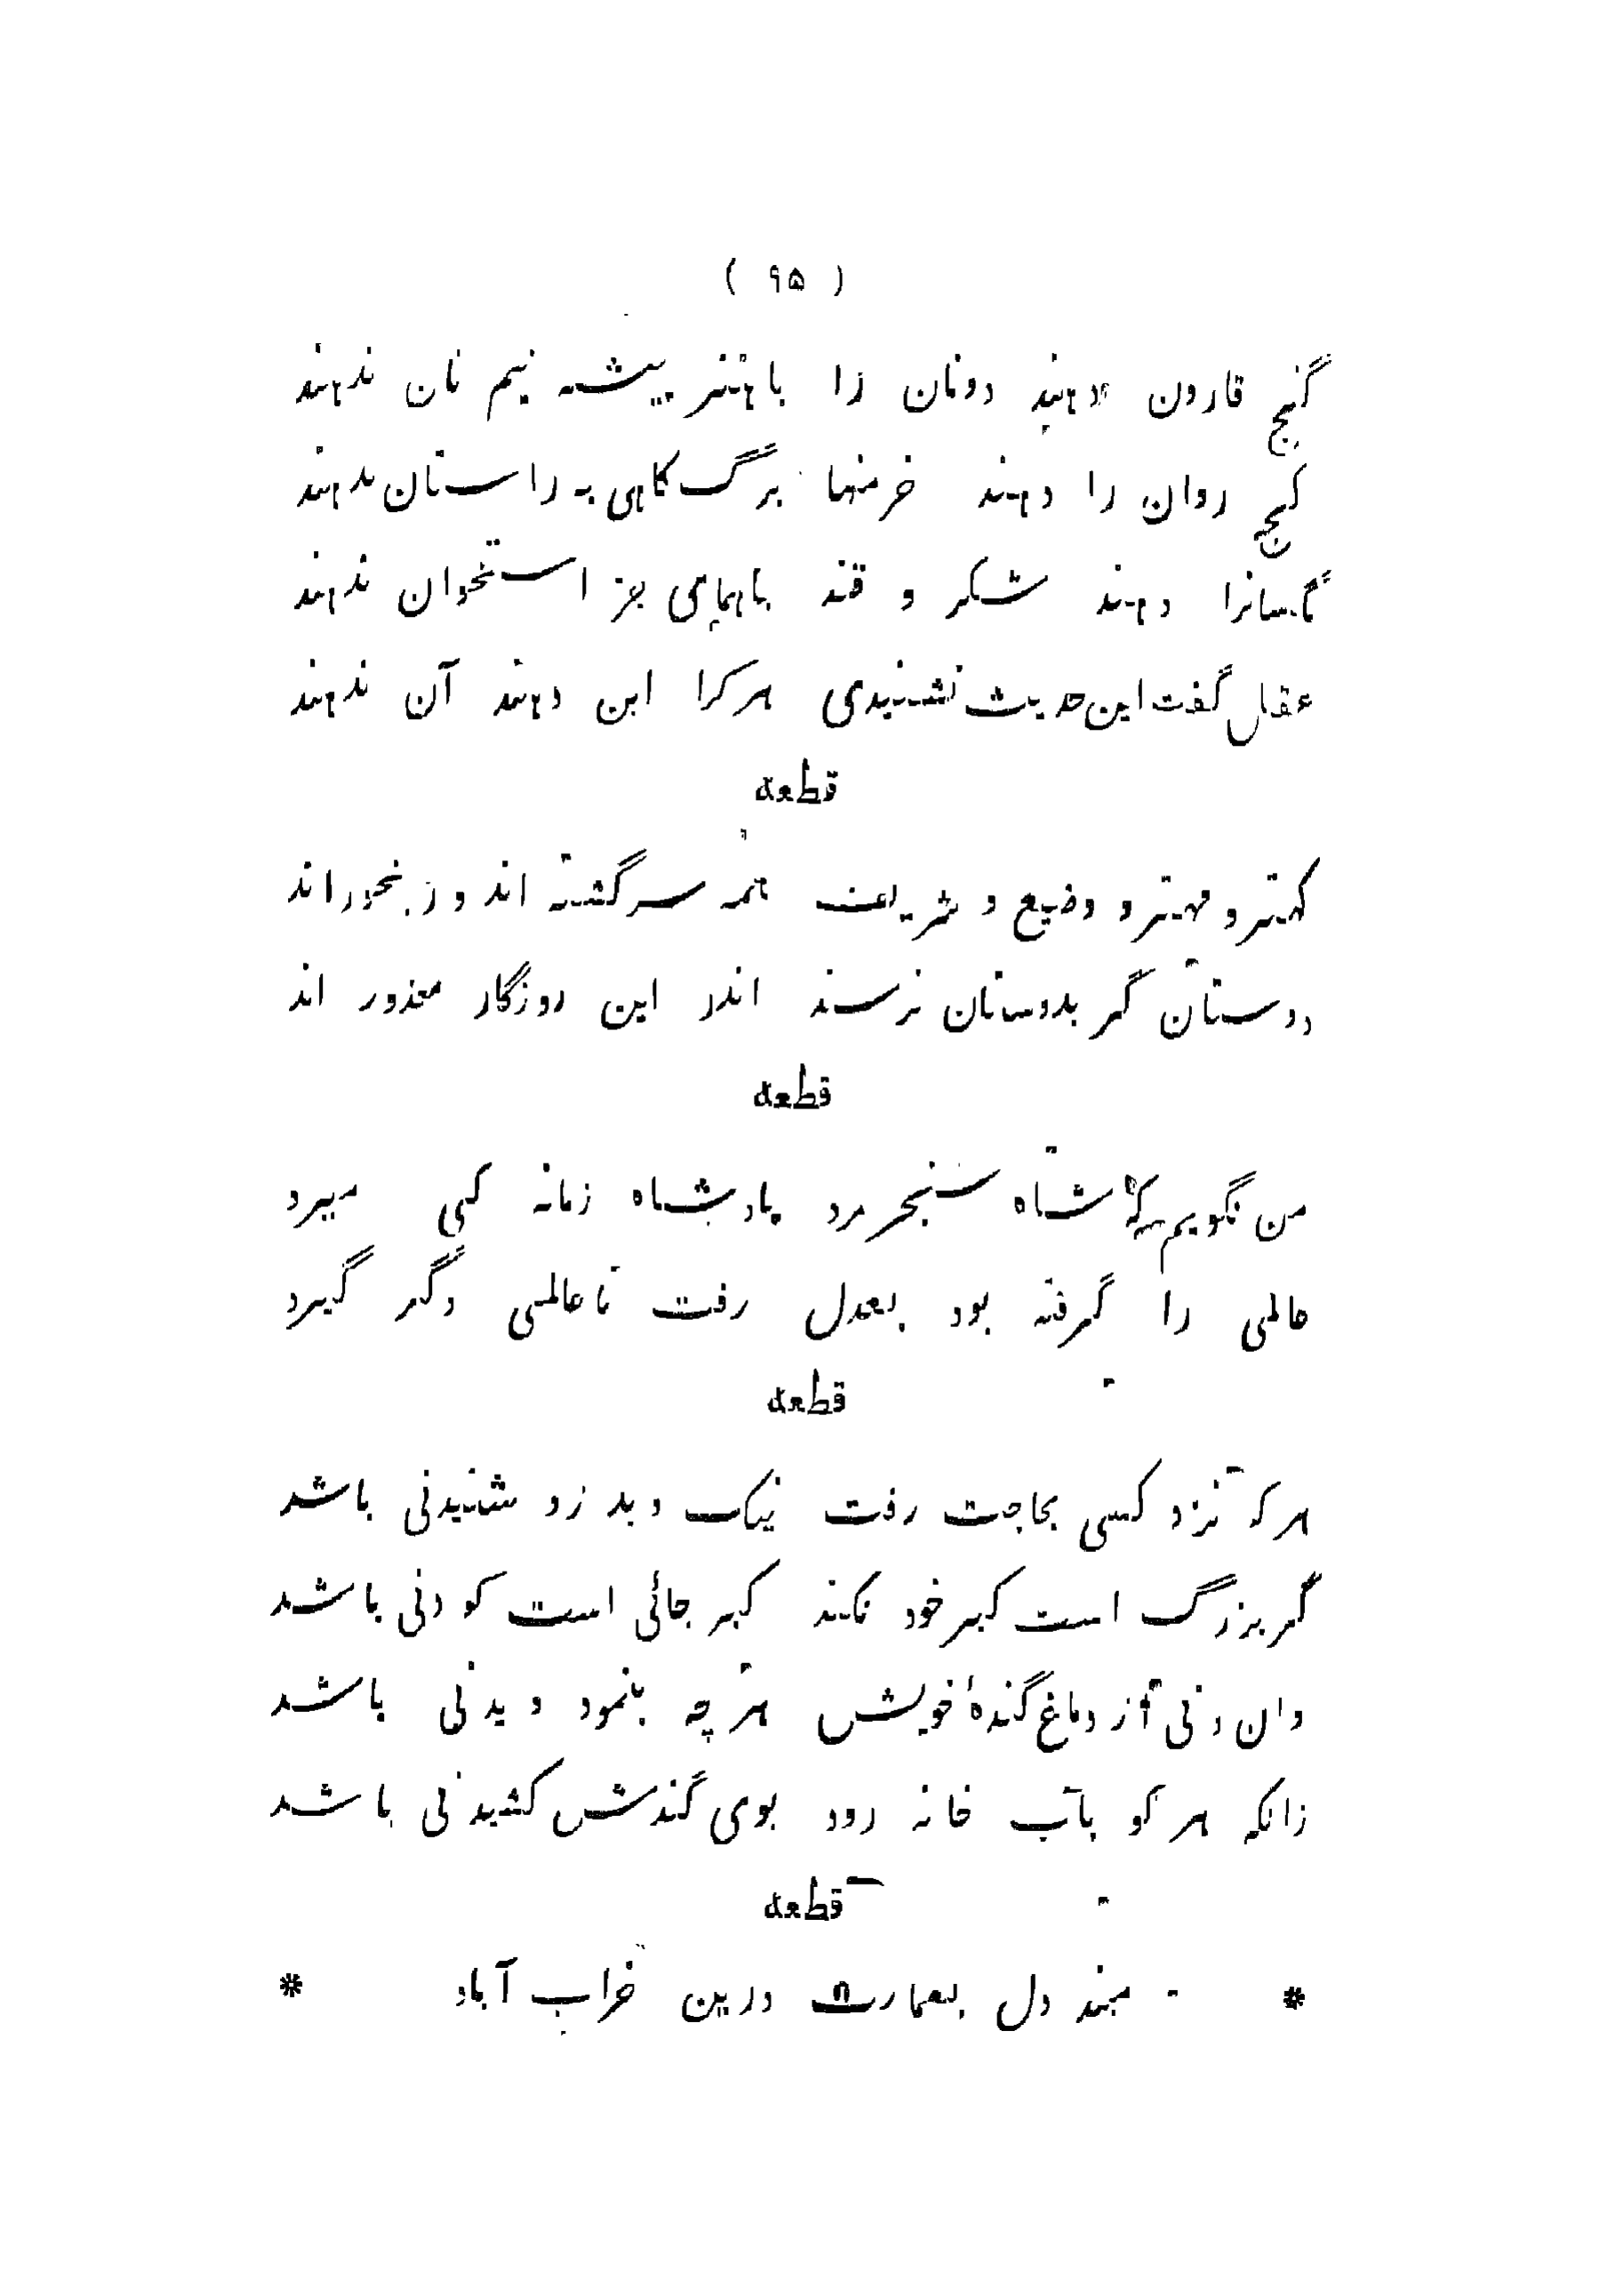 ( ۹۵ )
گنج قارون دهند دونان را باهنر پیشه نیم نان ندهند
کج روان را دهند خرمنها برگ کاهی به راستان ندهند
مگسانرا دهند شکر و قند باهمای جز استخوان ندهند
عقل گفت این حدیث نشنیدی هرکرا این دهند آن ندهند
قطعه
کهتر و مهتر و وضیع و شریف همه سرگشته اند و رنجور اند
دوستان گر بدوستان نرسند اندر این روزگار معذور اند
قطعه
من نگویم که شاه سنجر مرد پادشاه زمانه کی میرد
عالمی را گرفته بود بعدل رفت تا عالمی دگر گیرد
قطعه
هر که نزد کسی بحاجت رفت نیک و بد زو شنیدنی باشد
گر بزرگ است کبر خود نکند کبر جائی است کو دنی باشد
وان دنی از دماغ گندهٔ خویش هر چه بنمود دیدنی باشد
زانکه هر کو بآب خانه رود بوی گندش کشیدنی باشد
قطعه
* مبند دل بعمارت درین خراب آباد *